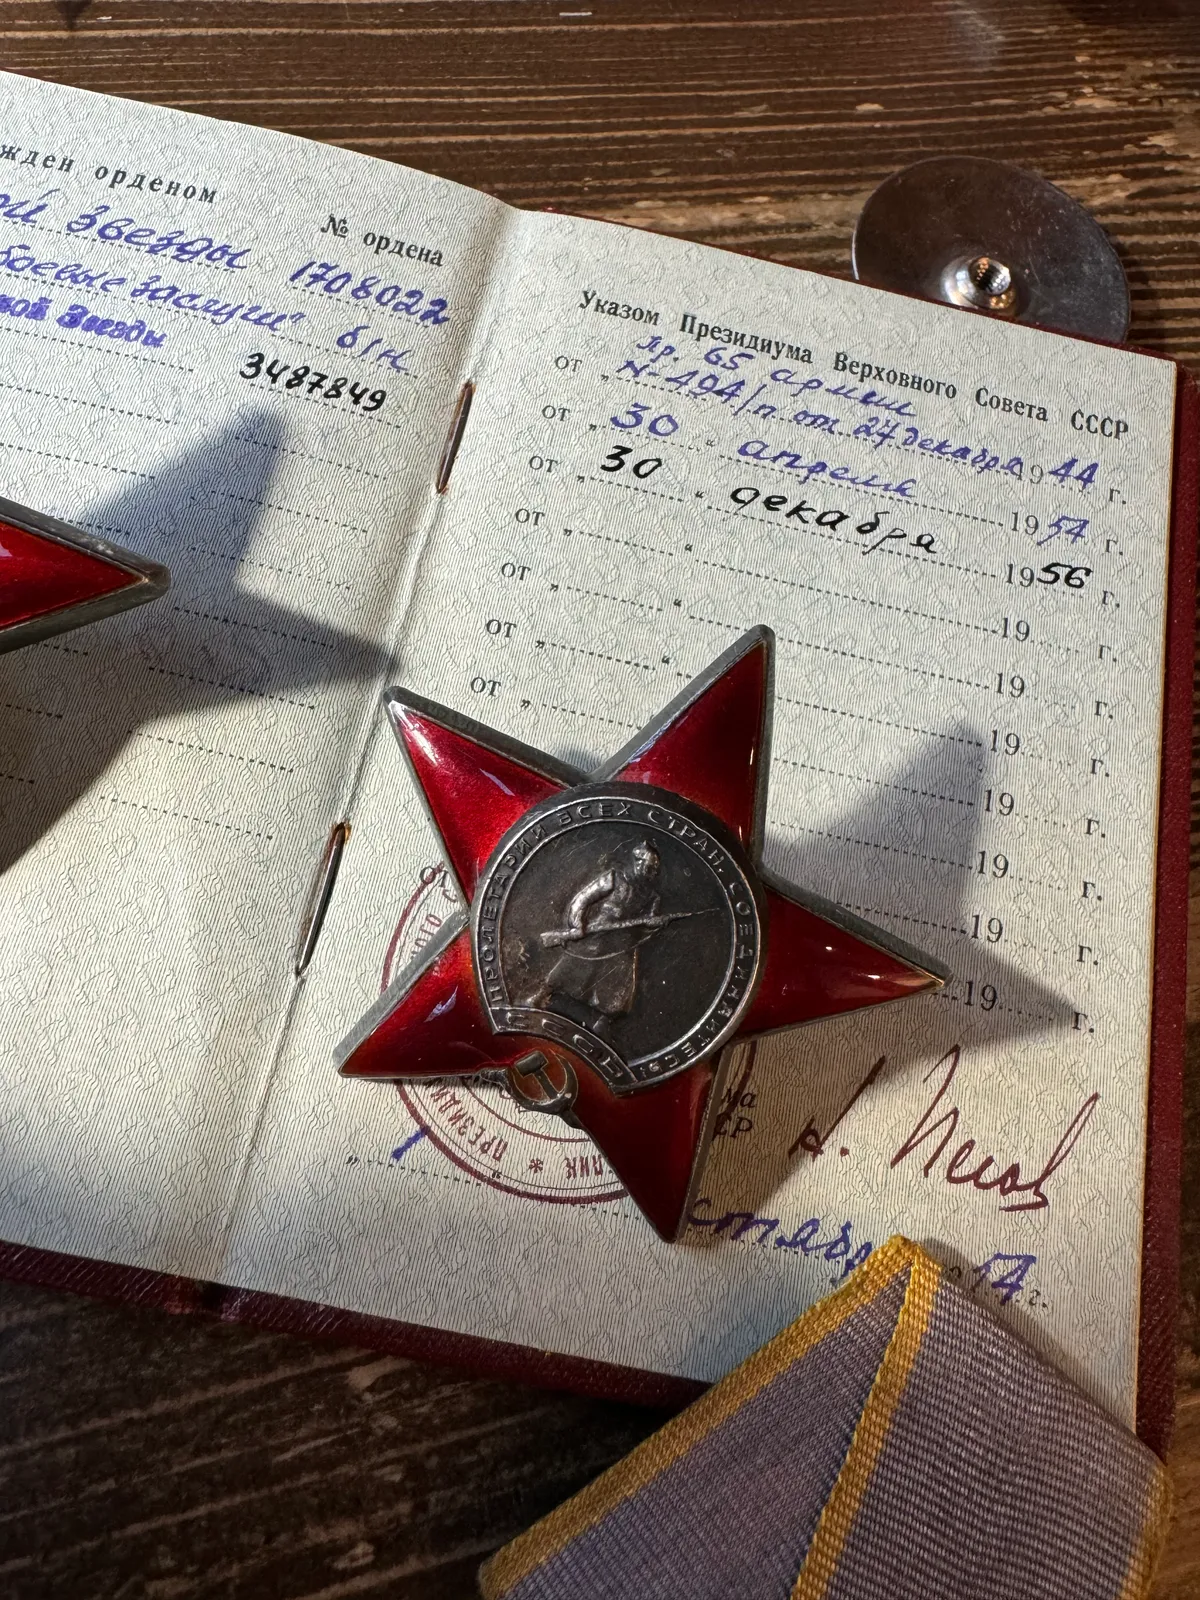 жден орденом
№ ордена
ой Звезды 1708022
боевые заслуги" б/н
ной Звезды 3487849
Указом Президиума Верховного Совета СССР
пр. 65 армии
от „N-494/п от 27 декабря 1944 г.
от „30“ апреля 1954 г.
от „30“ декабря 1956 г.
от „ “ 19 г.
от „ “ 19 г.
от „ “ 19 г.
от „ 19 г.
19 г.
19 г.
19 г.
от 19 г.
ПРОЛЕТАРИИ ВСЕХ СТРАН, СОЕДИНЯЙТЕСЬ!
СССР
ПРЕЗИДИ
ЛИК
на
СР
Н. Пегов
„1“
54 г.